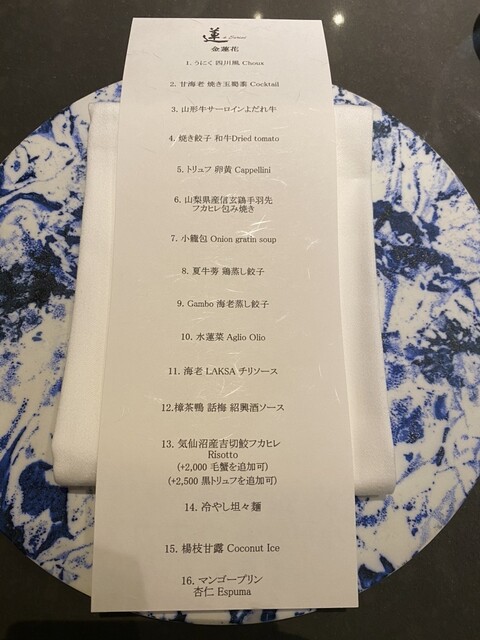 蓮
金蓮花
1. うにく 四川風 Choux
2. 甘海老 焼き玉蜀黍 Cocktail
3. 山形牛サーロインよだれ牛
4. 焼き餃子 和牛Dried tomato
5. トリュフ 卵黄 Cappellini
6. 山梨県産信玄鶏手羽先
フカヒレ包み焼き
7. 小籠包 Onion gratin soup
8. 夏牛蒡 鶏蒸し餃子
9. Gambo 海老蒸し餃子
10. 水蓮菜 Aglio Olio
11. 海老 LAKSA チリソース
12.樟茶鴨 話梅 紹興酒ソース
13. 気仙沼産吉切鮫フカヒレ
Risotto
(+2,000 毛蟹を追加可)
(+2,500 黒トリュフを追加可)
14. 冷やし坦々麺
15. 楊枝甘露 Coconut Ice
16. マンゴープリン
杏仁 Espuma